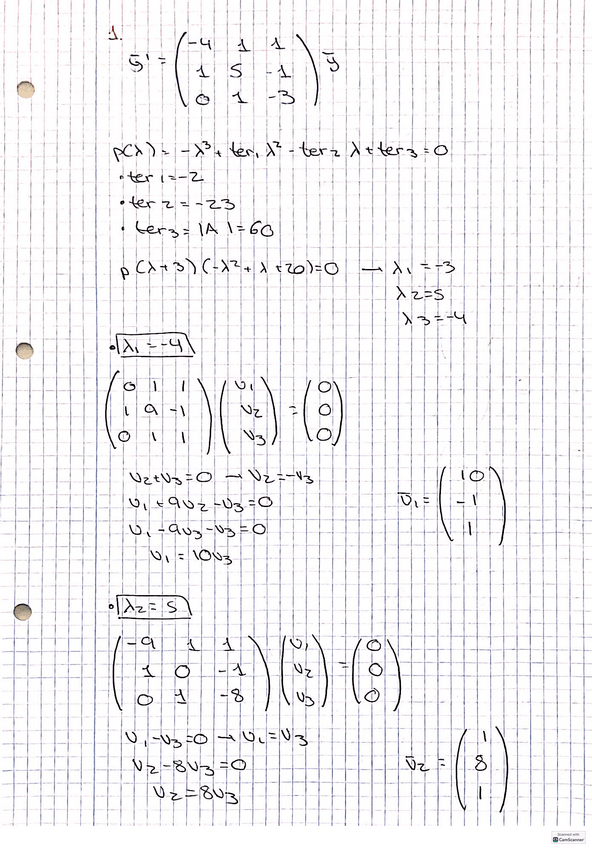 1.
ȳ' = (-4 1 1
1 5 -1
0 1 -3) ȳ
p(λ) = -λ³ + ter₁ λ² - ter₂ λ + ter₃ = 0
• ter₁ = -2
• ter₂ = -23
• ter₃ = |A| = 60
p(λ+3)(-λ²+λ+20) = 0 → λ₁ = -3
λ₂ = 5
λ₃ = -4
• λ₁ = -4
(0 1 1
1 9 -1
0 1 1) (v₁
v₂
v₃) = (0
0
0)
v₂+v₃=0 → v₂=-v₃
v₁+9v₂-v₃=0
v₁-9v₃-v₃=0
v₁=10v₃
v̄₁ = (10
-1
1)
• λ₂ = 5
(-9 1 1
1 0 -1
0 1 -8) (v₁
v₂
v₃) = (0
0
0)
v₁-v₃=0 → v₁=v₃
v₂-8v₃=0
v₂=8v₃
v̄₂ = (1
8
1)
Scanned with
CamScanner